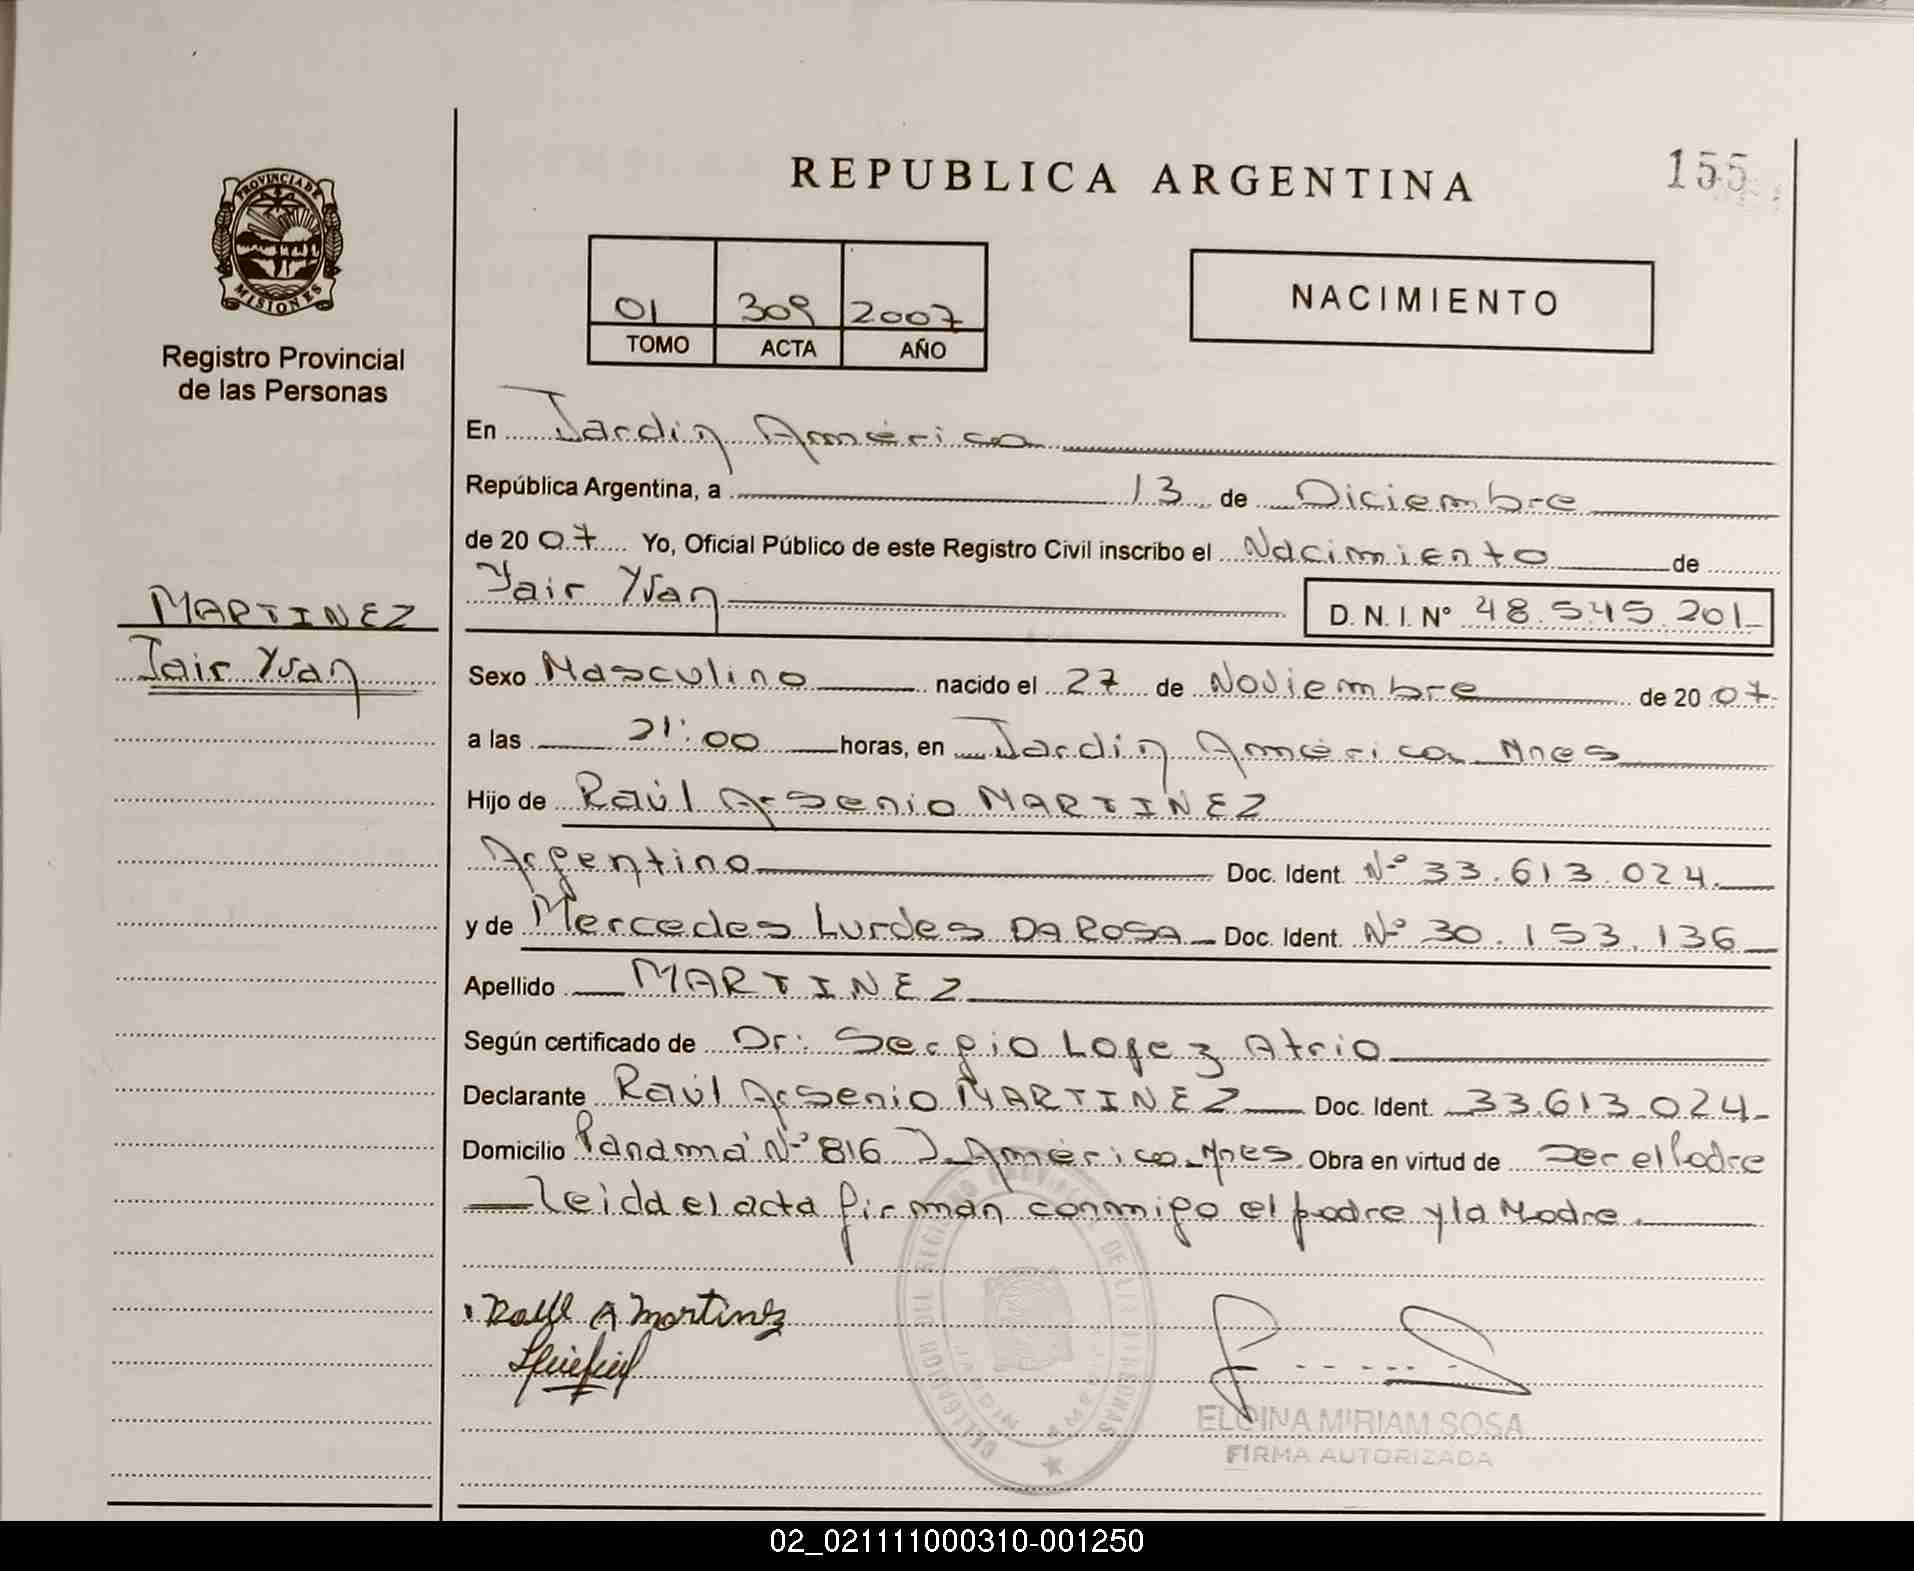 REPUBLICA ARGENTINA
155
PROVINCIA DE
MISIONES
Registro Provincial
de las Personas
01 309 2007
TOMO ACTA AÑO
NACIMIENTO
En Jardín América
República Argentina, a 13 de Diciembre
de 20 07 Yo, Oficial Público de este Registro Civil inscribo el Nacimiento de
Jair Yvan D. N. I. N° 48.545.201
MARTINEZ
Jair Yvan
Sexo Masculino nacido el 27 de Noviembre de 20 07
a las 21:00 horas, en Jardín América Mnes
Hijo de Raúl Arsenio MARTINEZ
Argentino Doc. Ident. Nº 33.613.024
y de Mercedes Lurdes DA ROSA Doc. Ident. Nº 30.153.136
Apellido MARTINEZ
Según certificado de Dr: Sergio Lopez Atrio
Declarante Raúl Arsenio MARTINEZ Doc. Ident. 33.613.024
Domicilio Panamá Nº 816 J. América Mnes. Obra en virtud de Ser el Padre
Leida el acta firman conmigo el padre y la Madre.
Raul A Martinez
DELEGACION DEL REGISTRO PROVINCIAL DE LAS PERSONAS
JARDIN AMERICA
ELOINA MIRIAM SOSA
FIRMA AUTORIZADA
02_021111000310-001250